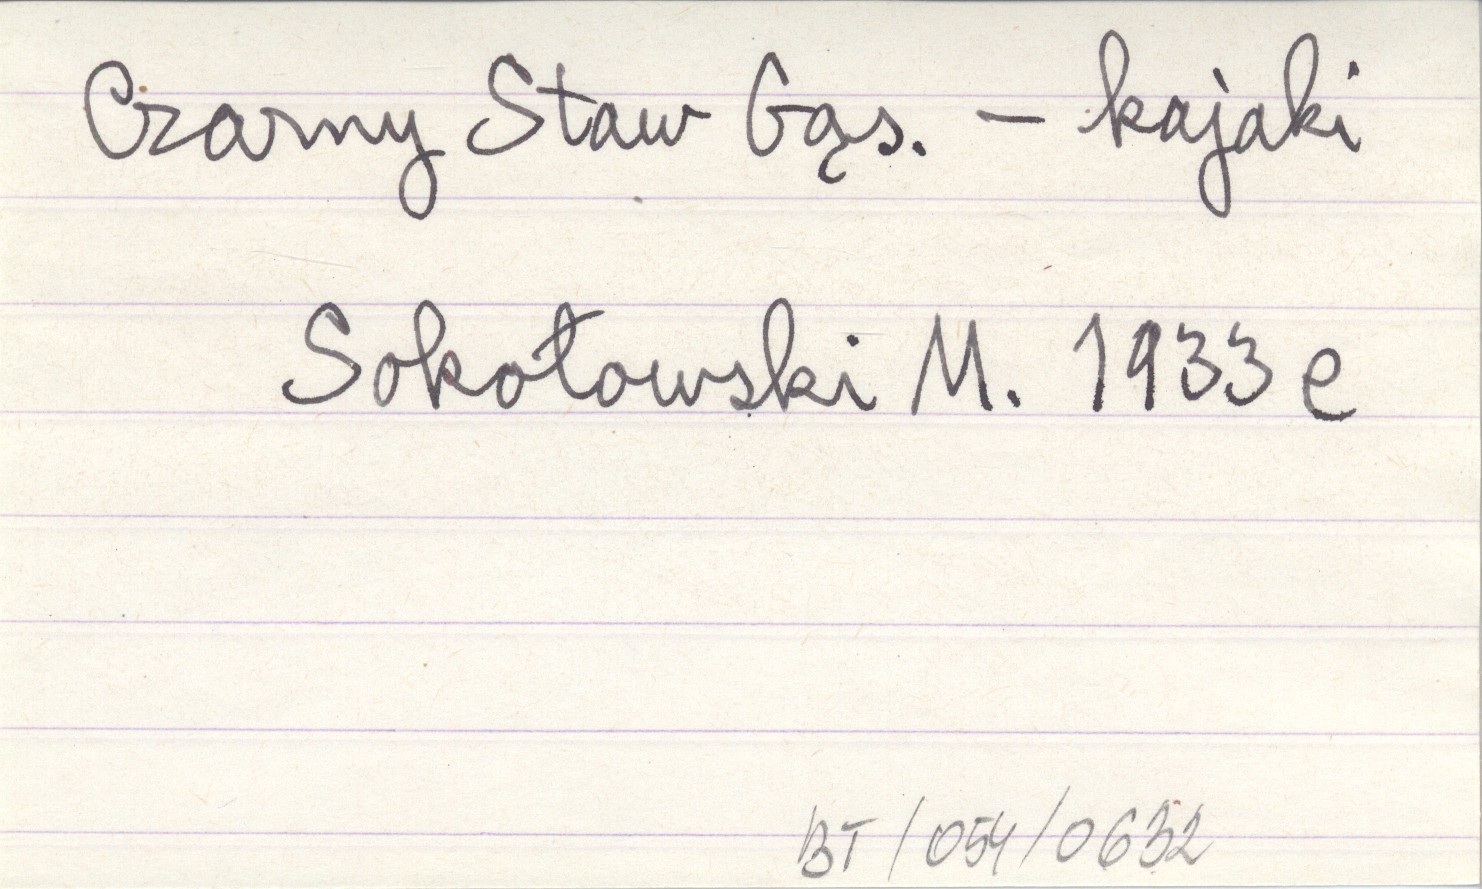 Czarny Staw Gąs. – kajaki
Sokołowski M. 1933 e
BT/054/0632